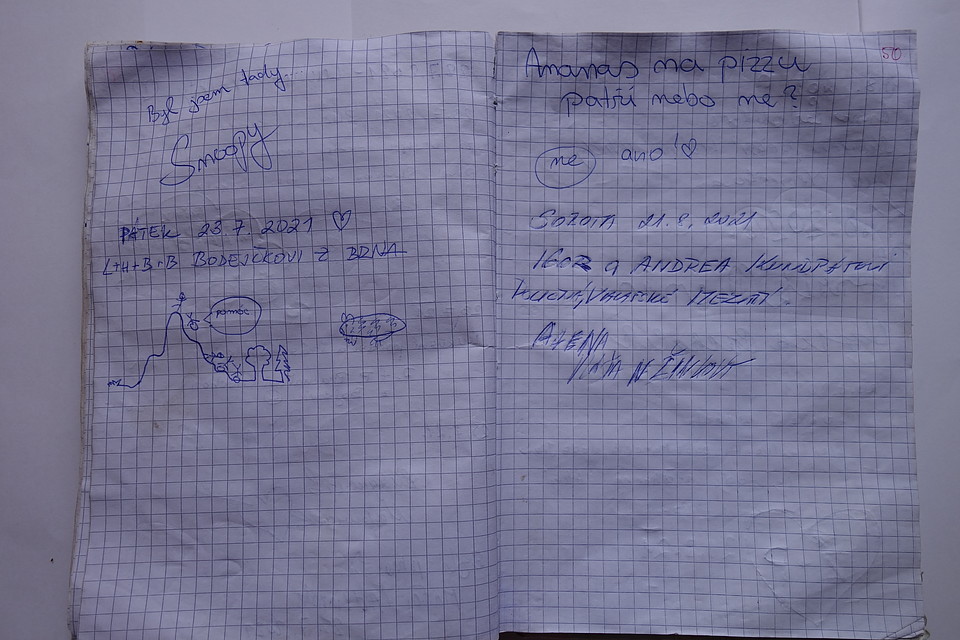 Byl jsem tady....
Snoopy
PÁTEK 23.7.2021 ♡
L+H+B+B BODEJČKOVI Z BRNA
pomóc
50
Ananas na pizzu
patří nebo ne?
ne ano! ♡
SOBOTA 21.8.2021
IGOR a ANDREA
VALAŠSKÉ MEZIŘÍ
ALENA